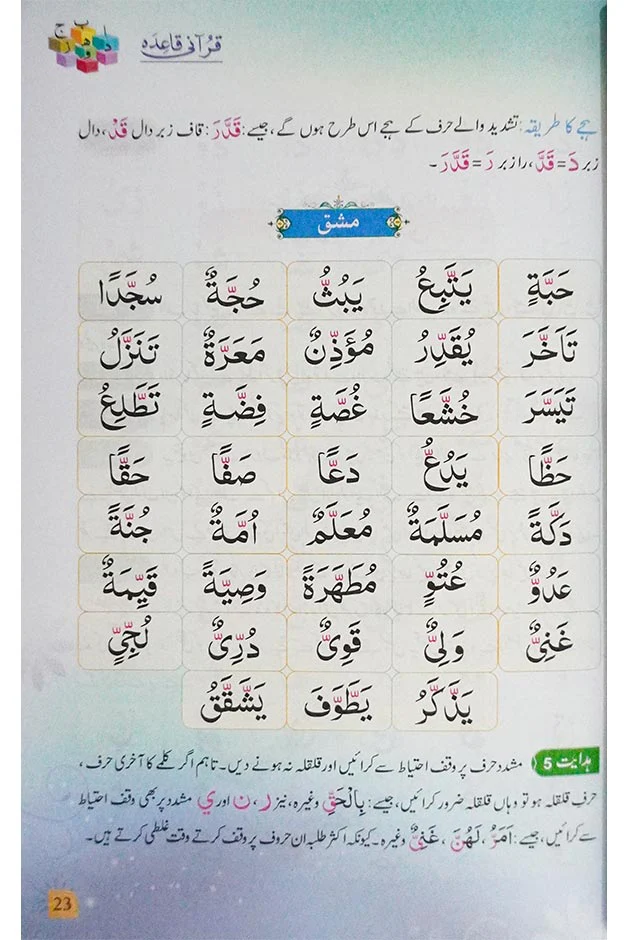 ا ب ج
د و ھ ز
قرآنی قاعدہ
ہجے کا طریقہ: تشدید والے حرف کے ہجے اس طرح ہوں گے، جیسے: قَدَّرَ: قاف زبر دال قَدْ، دال
زبر دَ = قَدَّ، را زبر رَ = قَدَّرَ ۔
مشق
حَبَّةٍ يَتَّبِعُ يَبُثُّ حُجَّةٌ سُجَّدًا
تَاَخَّرَ يُقَدِّرُ مُؤَذِّنٌ مَعَرَّةٌ تَنَزَّلُ
تَيَسَّرَ خُشَّعًا غُصَّةٍ فِضَّةٍ تَطَّلِعُ
حَظًّا يَدُعُّ دَعًّا صَفًّا حَقًّا
دَكَّةً مُسَلَّمَةٌ مُعَلَّمٌ اُمَّةٌ جُنَّةً
عَدُوٌّ عُتُوٍّ مُطَهَّرَةً وَصِيَّةً قَيِّمَةٌ
غَنِىٌّ وَلِىٌّ قَوِىٌّ دُرِّىٌّ لُجِّىٍّ
يَذَّكَّرُ يَطَّوَّفَ يَشَّقَّقُ
ہدایت 5 مشدد حرف پر وقف احتیاط سے کرائیں اور قلقلہ نہ ہونے دیں۔ تاہم اگر کلمے کا آخری حرف،
حرفِ قلقلہ ہو تو وہاں قلقلہ ضرور کرائیں، جیسے: بِالْحَقِّ وغیرہ، نیز ر، ن اور ي مشدد پر بھی وقف احتیاط
سے کرائیں، جیسے: اَمَرُّ، لَهُنَّ، غَنِىٌّ وغیرہ۔ کیونکہ اکثر طلبہ ان حروف پر وقف کرتے وقت غلطی کرتے ہیں۔
23